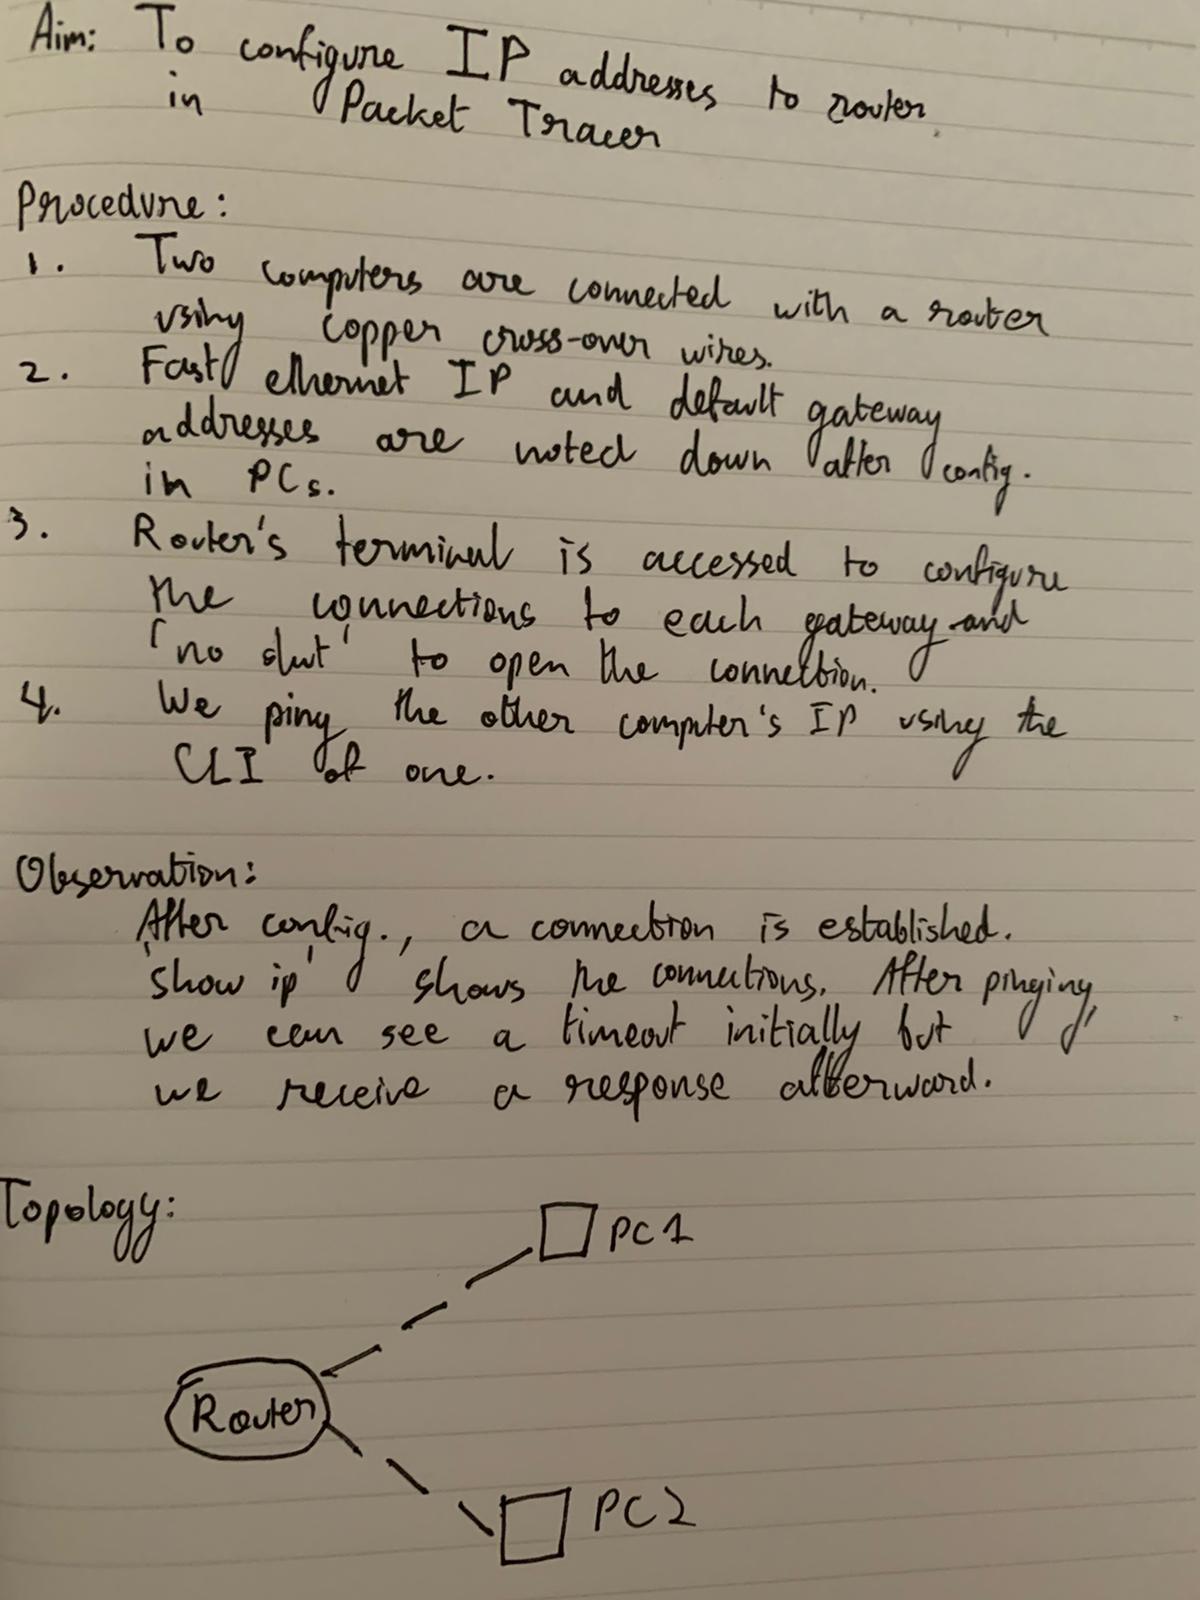 Aim: To configure IP addresses to router
in Packet Tracer
Procedure:
1. Two computers are connected with a router
using copper cross-over wires.
2. Fast ethernet IP and default gateway
addresses are noted down after config.
in PCs.
3. Router's terminal is accessed to configure
the connections to each gateway and
'no shut' to open the connection.
4. We ping the other computer's IP using the
CLI of one.
Observation:
After config., a connection is established.
'show ip' shows the connections. After pinging,
we can see a timeout initially but
we receive a response afterward.
Topology:
PC1
Router
PC2